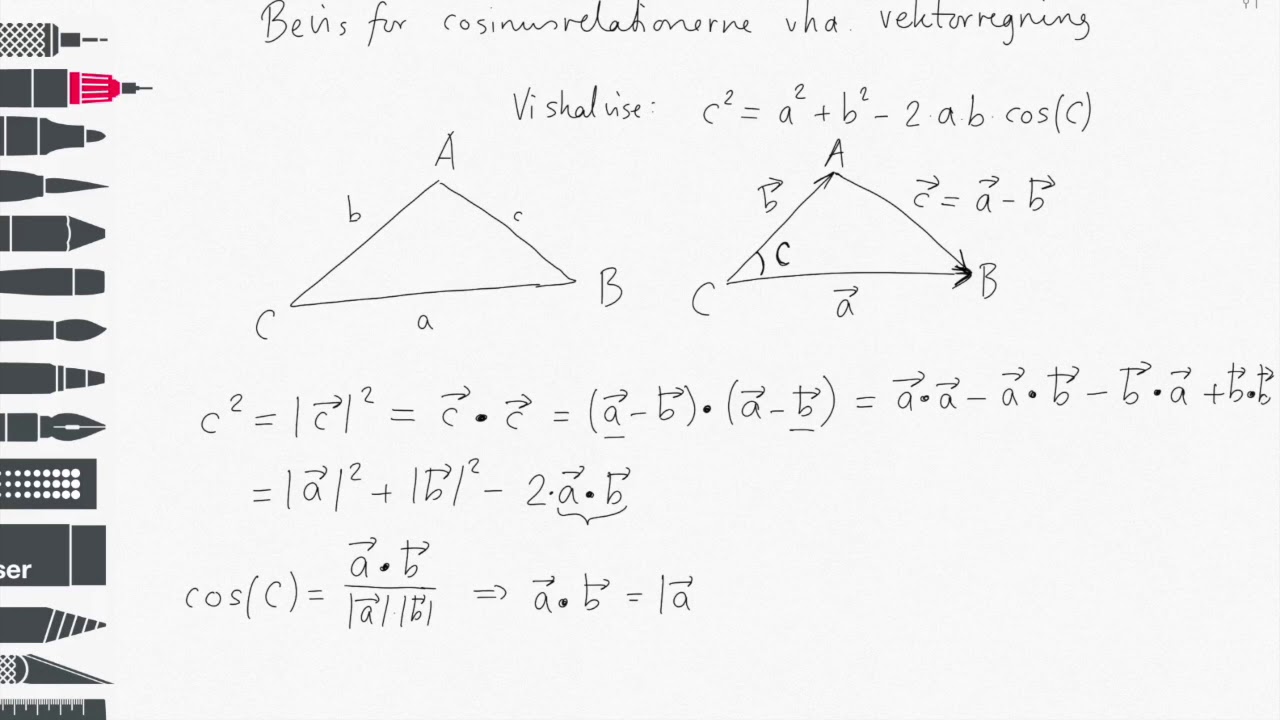 Bevis for cosinusrelationerne vha. vektorregning
Vi skal vise: c² = a² + b² - 2·a·b·cos(C)
A
b
c
C
a
B
A
b⃗
c⃗ = a⃗ - b⃗
C
C
a⃗
B
c² = |c⃗|² = c⃗ • c⃗ = (a⃗ - b⃗)•(a⃗ - b⃗) = a⃗•a⃗ - a⃗•b⃗ - b⃗•a⃗ + b⃗•b⃗
= |a⃗|² + |b⃗|² - 2·a⃗•b⃗
ser
cos(C) = a⃗•b⃗ / |a⃗|·|b⃗| ⇒ a⃗•b⃗ = |a⃗